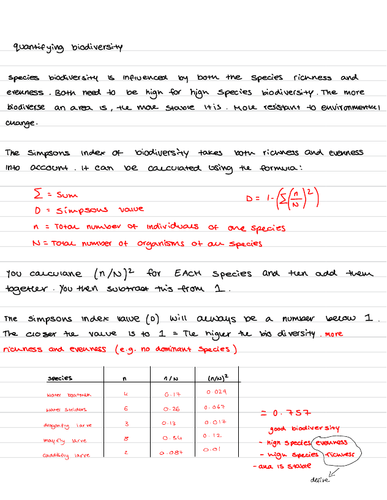 quantifying biodiversity
species biodiversity is influenced by both the species richness and
evenness. Both need to be high for high species biodiversity. The more
biodiverse an area is, the more stable it is. More resistant to environmental
change.
The simpsons index of biodiversity takes both richness and evenness
into account. it can be calculated using the formula:
∑ = sum
D = simpsons value
D = 1-(∑(n/N)²)
n = Total number of individuals of one species
N = Total number of organisms of all species
You calculate (n/N)² for EACH species and then add them
together. You then subtract this from 1.
The simpsons index value (D) will always be a number below 1.
The closer the value is to 1 = The higher the biodiversity. more
richness and evenness (e.g. no dominant species)
species n n/N (n/N)²
water boatman 4 0.17 0.029
water striders 6 0.26 0.067
dragonfly larve 3 0.13 0.017
mayfly larve 8 0.12
caddisfly larve 2 0.01
= 0.757
good biodiversity
- high species evenness
- high species richness
- area is stable
define